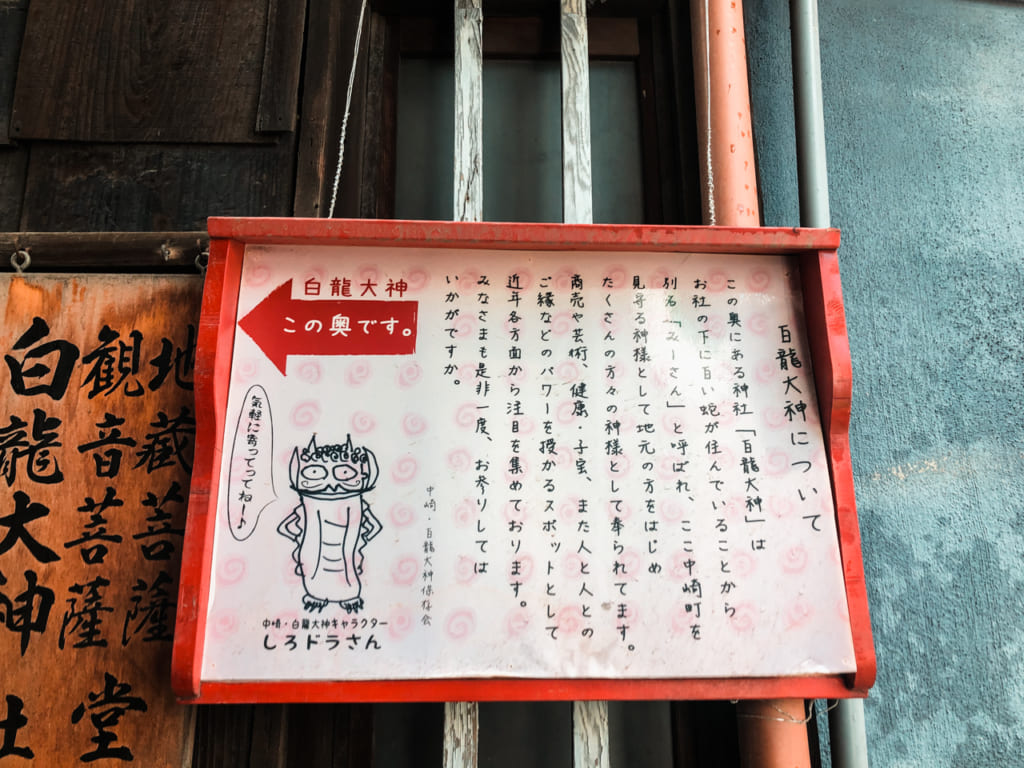 白龍大神について
この奥にある神社「白龍大神」は
お社の下に白い蛇が住んでいることから
別名「みーさん」と呼ばれ、ここ中崎町を
見守る神様として地元の方をはじめ
たくさんの方々の神様として奉られてます。
商売や芸術、健康・子宝、また人と人との
ご縁などのパワーを授かるスポットとして
近年各方面から注目を集めております。
みなさまも是非一度、お参りしては
いかがですか。
中崎・白龍大神保存会
白龍大神
この奥です。
気軽に寄ってってねー♪
中崎・白龍大神キャラクター
しろドラさん
地蔵菩薩
観音菩薩堂
白龍大神社